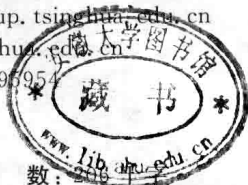 up.tsinghua.edu.cn
hua.edu.cn
95954
安徽大学图书馆
* 藏 书 *
www.lib.ahu.edu.cn
数: 200 千字